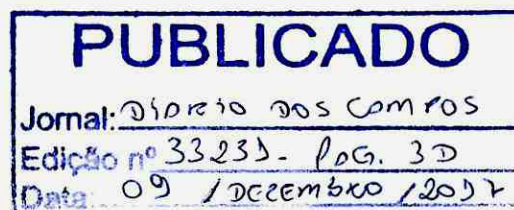 PUBLICADO
Jornal: DIÁRIO DOS CAMPOS
Edição nº 33231 - PÁG. 3D
Data: 09 / DEZEMBRO / 2017